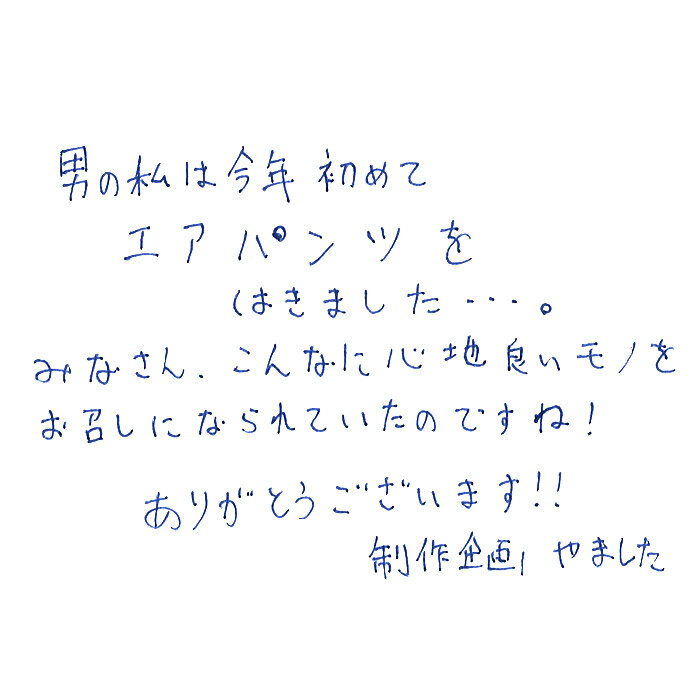 男の私は今年 初めて
エアパンツを
はきました・・・。
みなさん、こんなに心地良いモノを
お召しになられていたのですね!
ありがとうございます!!
制作企画/やました